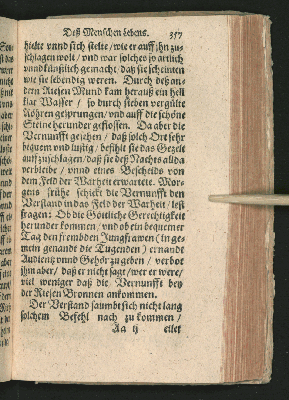 Deß Menschen Lebens. 357
hielte vnnd sich stelte / wie er auff ihn zu-
schlagen wolt / vnd war solches so artlich
vnnd künstlich gemacht / daß sie scheinten
wie sie lebendig weren. Durch deß an-
dern Riesen Mund kam herauß ein hell
klar Wasser / so durch sieben vergülte
Röhren gesprungen / vnd auff die schöne
Steine herunder geflossen. Da aber die
Vernunfft gesehen / daß solch Ort sehr
bequem vnd lustig / befihlt sie das Gezelt
auffzuschlagen / daß sie deß Nachts allda
verbleibe / vnnd eines Bescheids von
dem Feld der Warheit erwartete. Mor-
gens frühe schickt die Vernunfft den
Verstand in das Feld der Warheit / leß
fragen: Ob die Göttliche Gerechtigkeit
herunder kommen / vnd ob ein bequemer
Tag den frembden Jungfrawen (in ge-
mein genandt die Tugenden) ernandt
Audientz vnnd Gehör zu geben / verbot
jhm aber / daß er nicht sagt / wer er were /
viel weniger daß die Vernunfft bey
der Riesen Bronnen ankommen.
Der Verstand saumbt sich nicht lang
solchem Befehl nach zu kommen /
Aa ij eilet